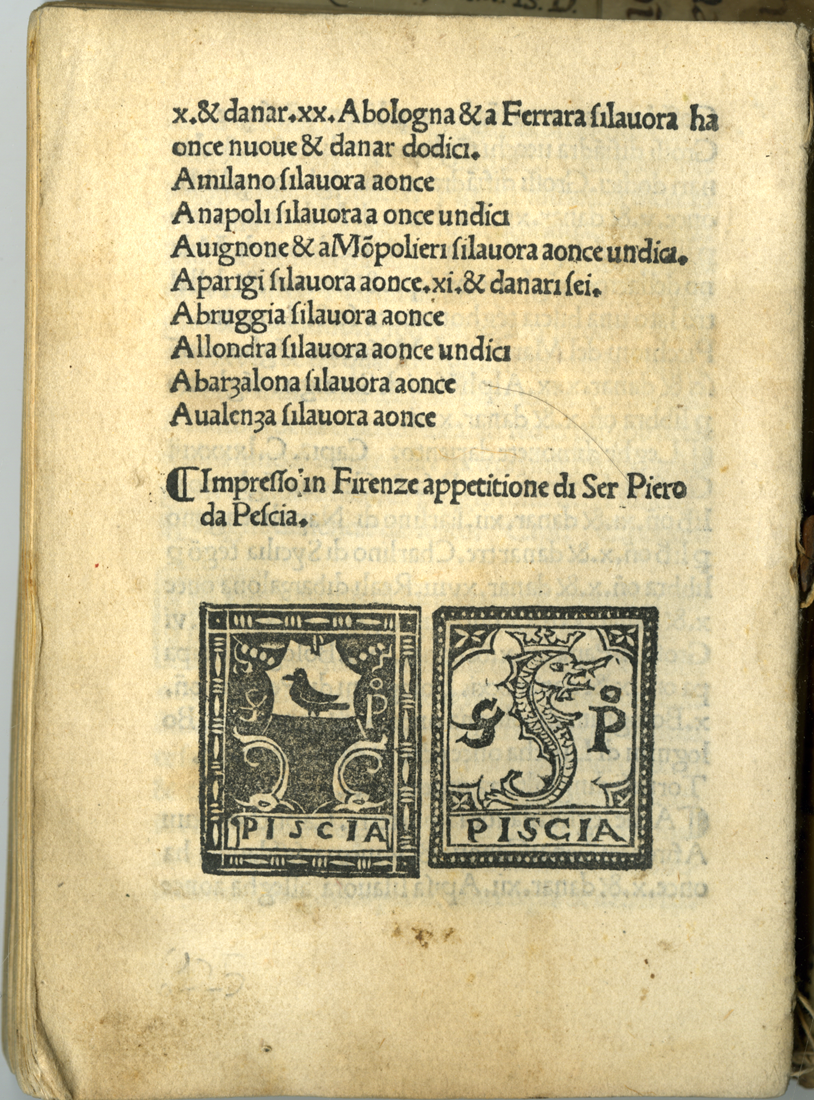 x.& danar.xx. Abologna & a Ferrara ſilauora ha
once nuoue & danar dodici.
Amilano ſilauora aonce
Anapoli ſilauora a once undici
Auignone & aMõpolieri ſilauora aonce undici.
Aparigi ſilauora aonce.xi.& danari ſei.
Abruggia ſilauora aonce
Allondra ſilauora aonce undici
Abarzalona ſilauora aonce
Aualenza ſilauora aonce
¶ Impreſſo in Firenze appetitione di Ser Piero
da Peſcia.
S P
PISCIA
S P
PISCIA